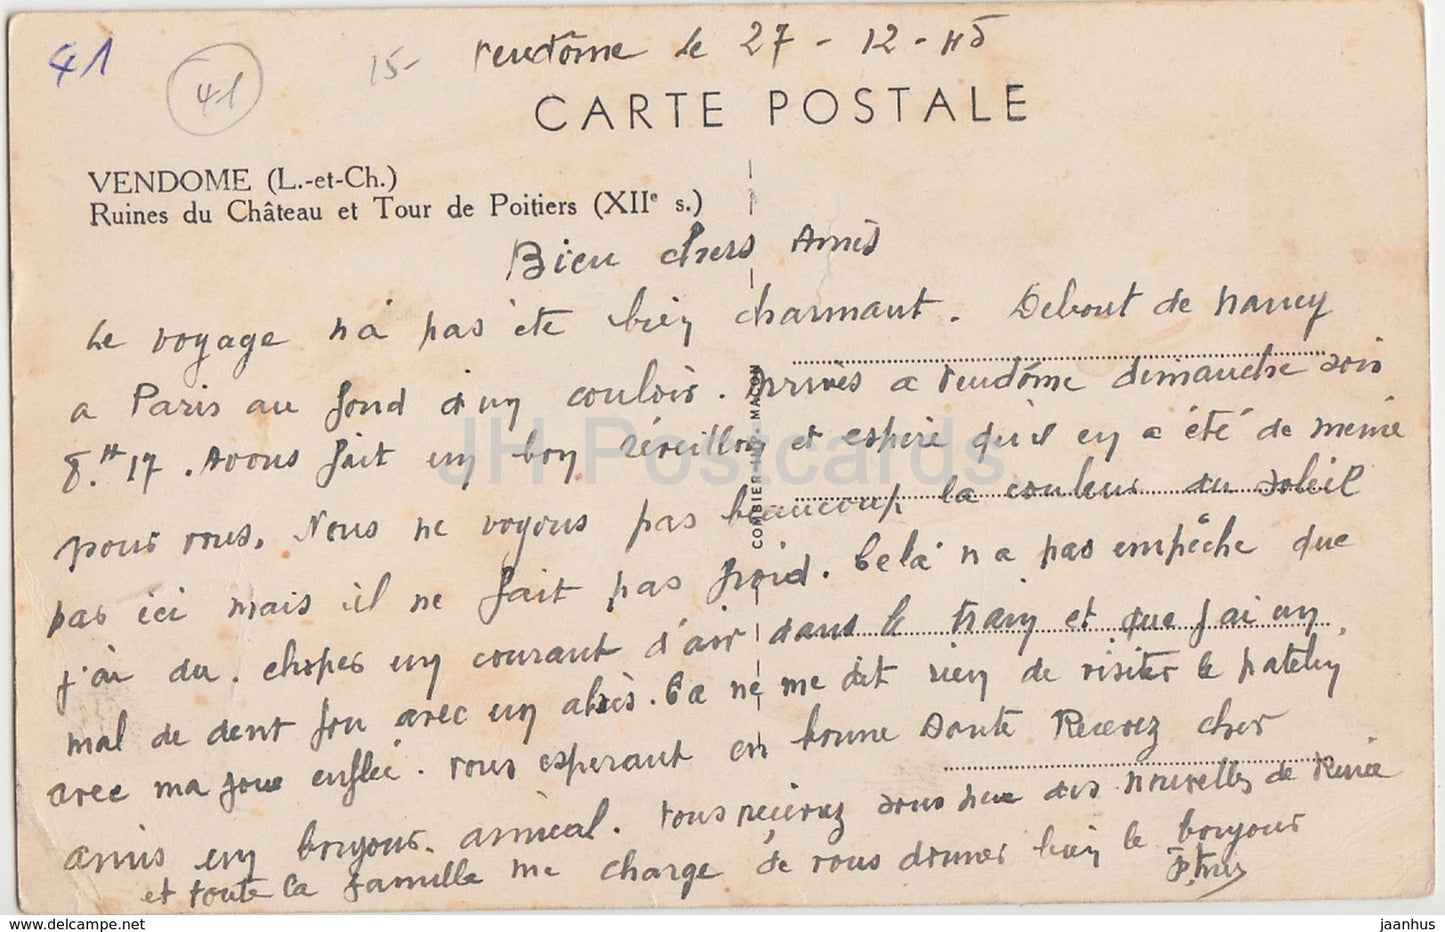 41
41
15-
Vendôme le 27-12-45
CARTE POSTALE
VENDOME (L.-et-Ch.)
Ruines du Château et Tour de Poitiers (XIIe s.)
Bien chers Amis
Le voyage n'a pas été bien charmant. Debout de Nancy
a Paris au fond d'un couloir. Arrivés a Vendôme dimanche soir
8.H 17. Avons fait un bon réveillon et espère qu'il en a été de même
pour vous. Nous ne voyons pas beaucoup la couleur du soleil
pas ici mais il ne fait pas froid. Celà n'a pas empêche que
j'ai du choper un courant d'air dans le train et que j'ai un
mal de dent fou avec un abcès. Ca ne me dit rien de visiter le patelin
avec ma joue enflée. Vous esperant en bonne Santé Recevez cher
amis un bonjour amical. Vous recevrez sous peu des nouvelles de Renée
et toute la famille me charge de vous donner bien le bonjour
COMBIER IMP. MACON
JH Postcards
www.delcampe.net
jaanhus